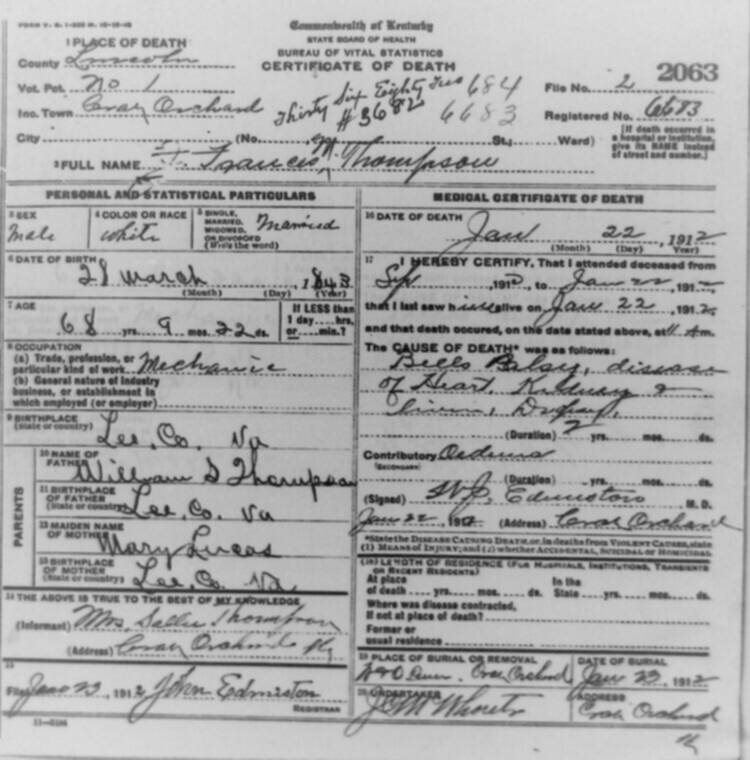 FORM V. S. 1
Commonwealth of Kentucky
STATE BOARD OF HEALTH
BUREAU OF VITAL STATISTICS
CERTIFICATE OF DEATH
1 PLACE OF DEATH
County Lincoln
Vot. Pct. No 1
Inc. Town Crab Orchard
Thirty Six Eighty Two 684
#3682 6683
File No. 2 2063
Registered No. 6683
City (No. St.; Ward)
[If death occurred in a hospital or institution, give its NAME instead of street and number.]
2 FULL NAME Francis M Thompson
PERSONAL AND STATISTICAL PARTICULARS
3 SEX Male
4 COLOR OR RACE White
5 SINGLE, MARRIED, WIDOWED, OR DIVORCED (Write the word) Married
6 DATE OF BIRTH
28 March, 1843
(Month) (Day) (Year)
7 AGE
68 yrs. 9 mos. 22 ds.
If LESS than 1 day....hrs. or....min.?
8 OCCUPATION
(a) Trade, profession, or particular kind of work Mechanic
(b) General nature of industry business, or establishment in which employed (or employer)
9 BIRTHPLACE (State or country) Lee, Co. Va
PARENTS
10 NAME OF FATHER William S Thompson
11 BIRTHPLACE OF FATHER (State or country) Lee, Co. Va
12 MAIDEN NAME OF MOTHER Mary Lucas
13 BIRTHPLACE OF MOTHER (State or country) Lee, Co. Va
14 THE ABOVE IS TRUE TO THE BEST OF MY KNOWLEDGE
(Informant) Mrs. Sallie Thompson
(Address) Crab Orchard Ky
15
Filed Jan 23, 1912 John Edmiston
REGISTRAR
11-3184
MEDICAL CERTIFICATE OF DEATH
16 DATE OF DEATH
Jan 22, 1912
(Month) (Day) (Year)
17 I HEREBY CERTIFY, That I attended deceased from
Sep, 191, to Jan 22, 1912
that I last saw him alive on Jan 22, 1912
and that death occured, on the date stated above, at 11 A m.
The CAUSE OF DEATH* was as follows:
Bells Palsy, disease
of Heart, Kidney &
liver, Dropsy,
(Duration) 2 yrs. mos. ds.
Contributory Oedema
(SECONDARY)
(Duration) yrs. mos. ds.
(Signed) W.J. Edmiston M. D.
Jan 22, 1912 (Address) Crab Orchard
*State the DISEASE CAUSING DEATH, or, in deaths from VIOLENT CAUSES, state
(1) MEANS OF INJURY; and (2) whether ACCIDENTAL, SUICIDAL or HOMICIDAL
(18) LENGTH OF RESIDENCE (FOR HOSPITALS, INSTITUTIONS, TRANSIENTS OR RECENT RESIDENTS)
At place of death yrs. mos. ds. In the State yrs. mos. ds.
Where was disease contracted, If not at place of death?
Former or usual residence
19 PLACE OF BURIAL OR REMOVAL Crab Orchard
DATE OF BURIAL Jan 23, 1912
20 UNDERTAKER
ADDRESS Crab Orchard